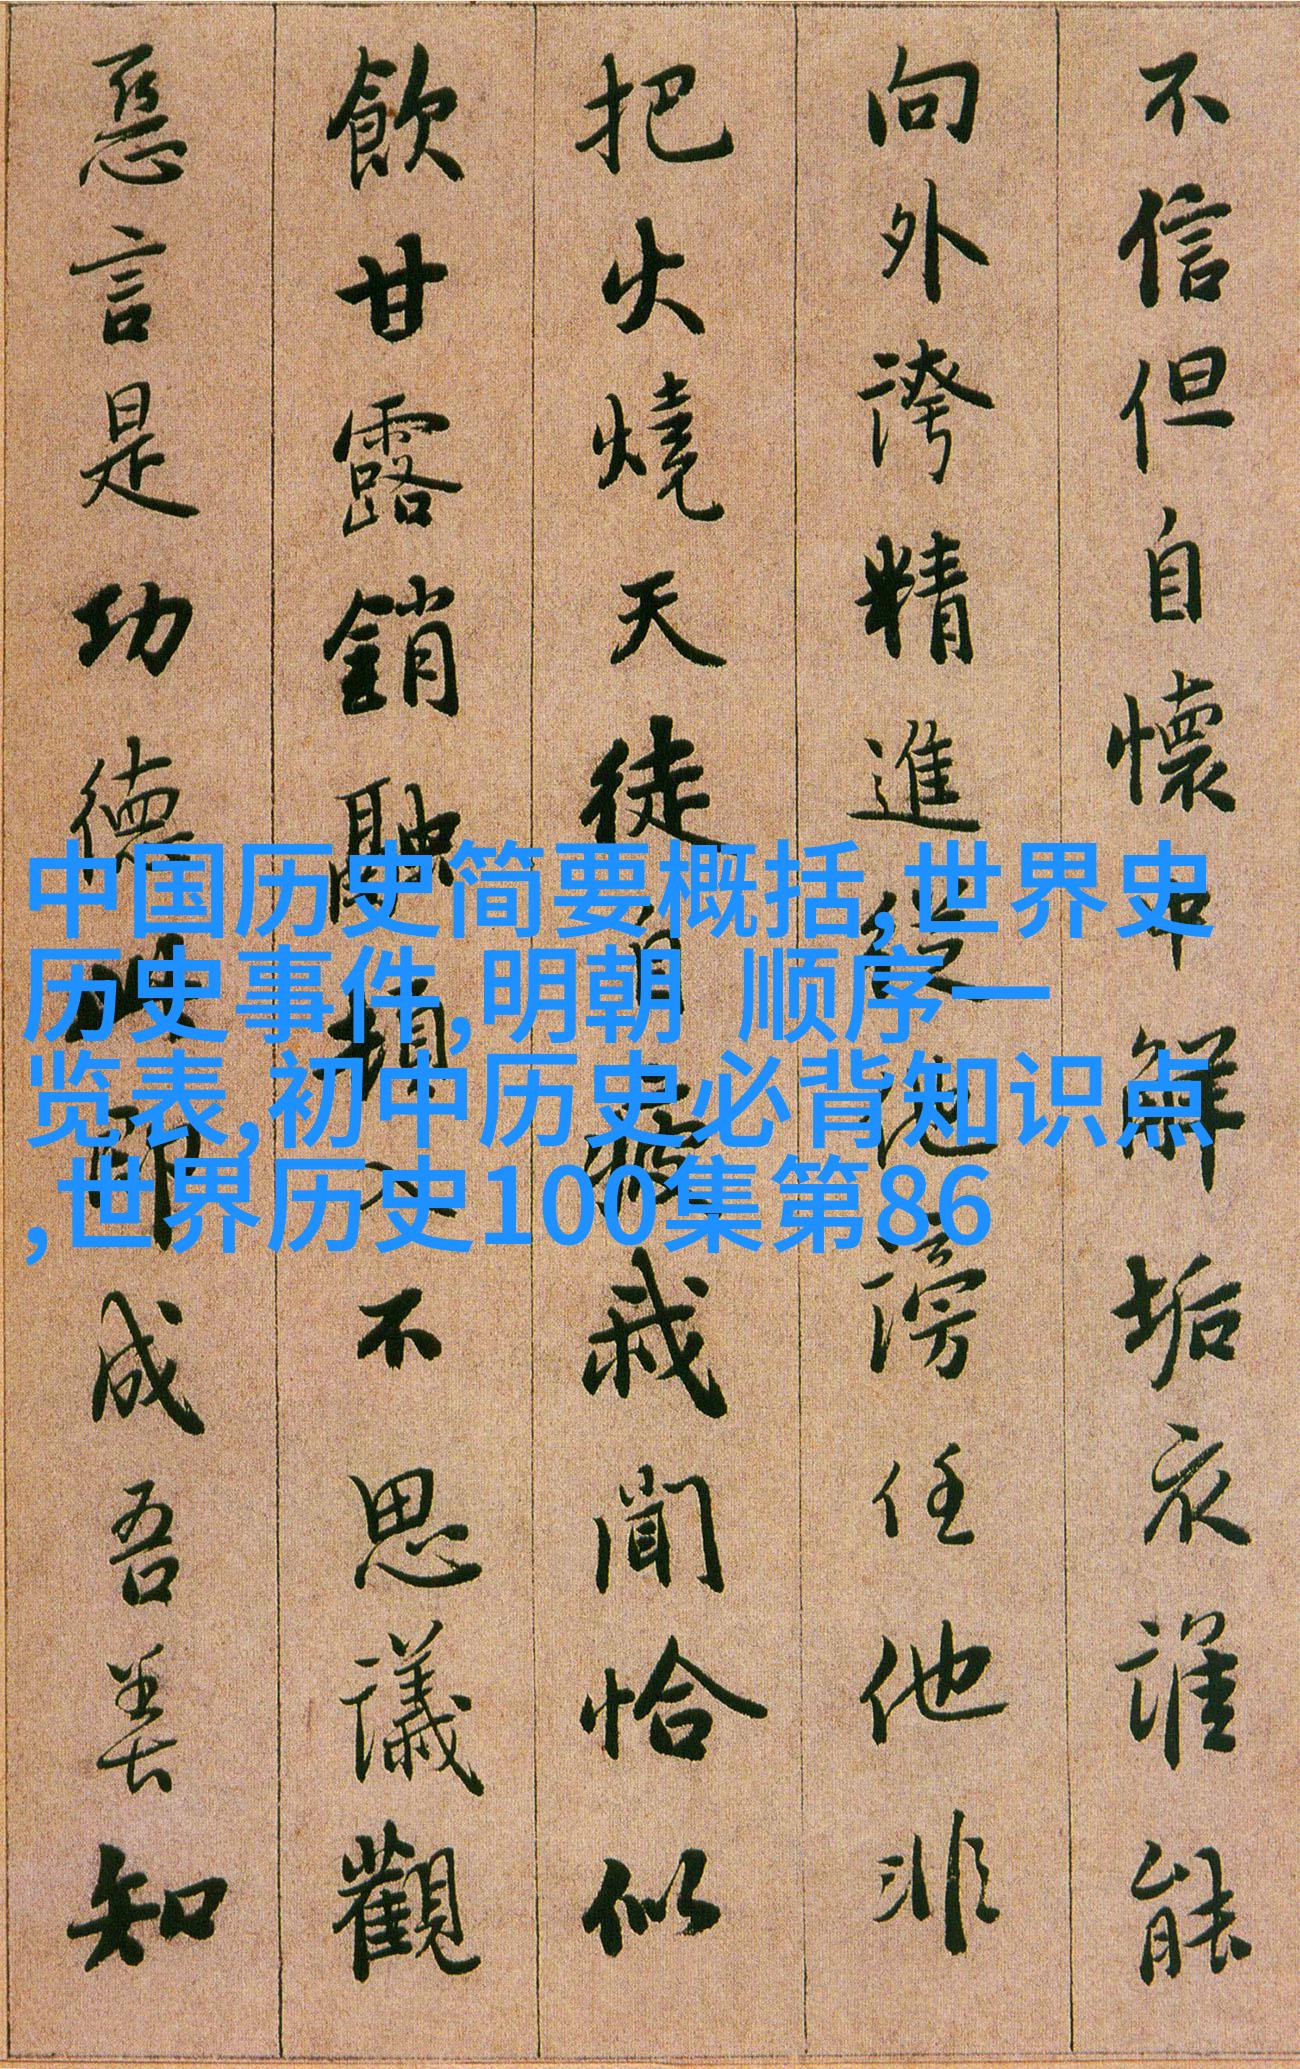 不信但自懷中解垢衣誰能
向外誇精進從他謗任他非
把火燒天徒自疲我聞恰似
飲甘露銷融頓入不思議觀
惡言是功德此即成吾善知
中国历史简要概括,世界史
历史事件,明朝 顺序一
览表,初中历史必背知识点
,世界历史100集第86